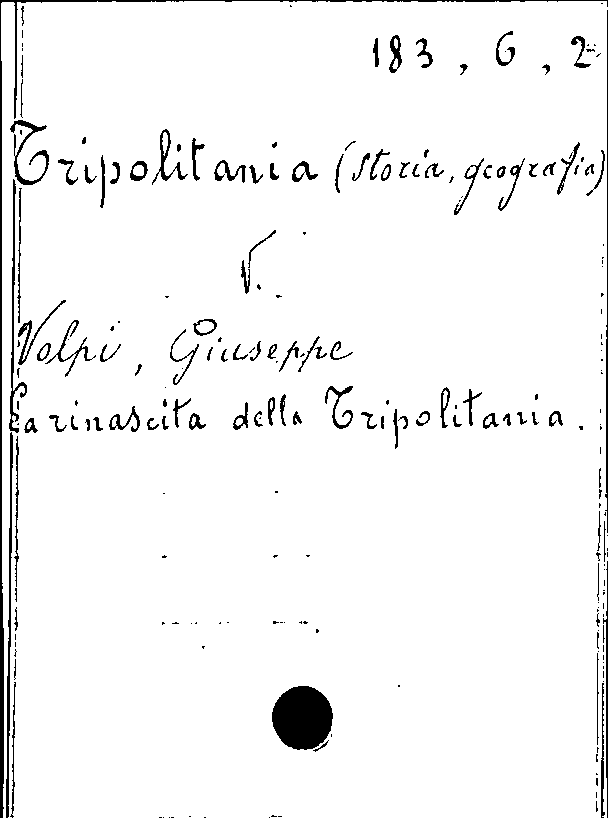 183, 6, 2
Tripolitania (storia, geografia)
V.
Volpi, Giuseppe
La rinascita della Tripolitania.